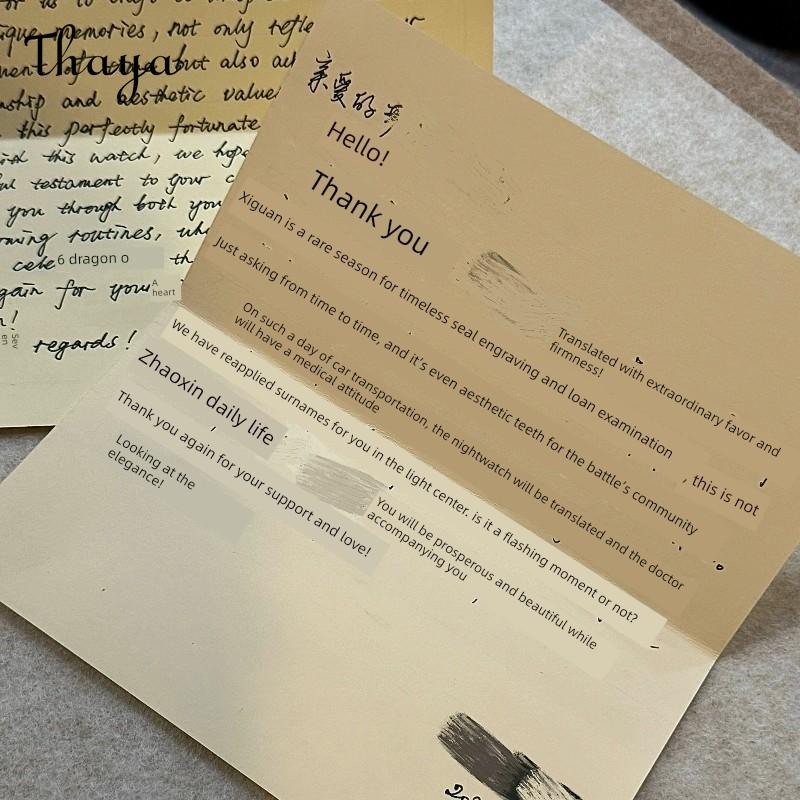 Thaya
ique memories, not only refle
but also
ship and aesthetic value
this perfectly fortunate
this watch, we hope
testament to your
you through both you
ming routines,
cele 6 dragon o th
gain for your A
heart
n!
Sev
en
regards!
亲爱的
Hello!
Thank you
Xiguan is a rare season for timeless seal engraving and loan examination
Translated with extraordinary favor and
firmness!
Just asking from time to time, and it's even aesthetic teeth for the battle's community
, this is not
On such a day of car transportation, the nightwatch will be translated and the doctor
will have a medical attitude
We have reapplied surnames for you in the light center, is it a flashing moment or not?
Zhaoxin daily life
You will be prosperous and beautiful while
accompanying you
Thank you again for your support and love!
Looking at the
elegance!